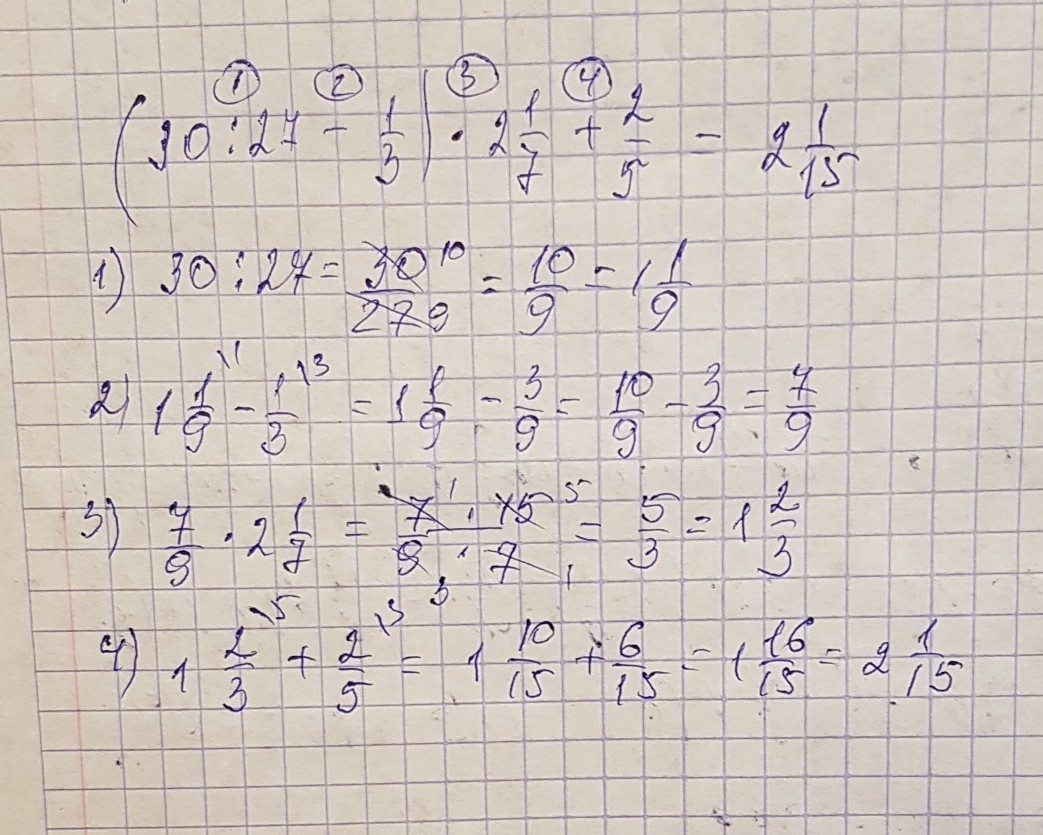 ① ② ③ ④
(30 : 27 - 1/3) · 2 1/7 + 2/5 = 2 1/15
1) 30 : 27 = 30 10/27 9 = 10/9 = 1 1/9
2) 1 1/9 \1 - 1/3 \3 = 1 1/9 - 3/9 = 10/9 - 3/9 = 7/9
3) 7/9 · 2 1/7 = 7 1 · 15 5/9 3 · 7 1 = 5/3 = 1 2/3
4) 1 2/3 \5 + 2/5 \3 = 1 10/15 + 6/15 = 1 16/15 = 2 1/15